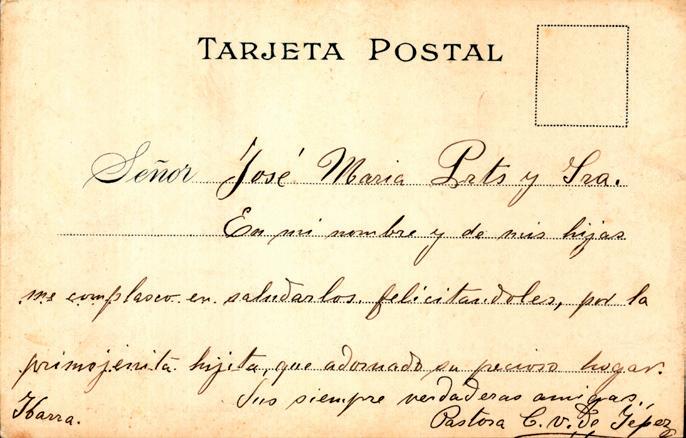 TARJETA POSTAL
Señor José Maria Prts y Sra.
En mi nombre y de mis hijas
me complasco en saludarlos felicitandoles, por la
primojenita hijita, que adornado su pecioso hogar.
Sus siempre verdaderas amigas.
Ibarra. Pastora C. v. de Yépez